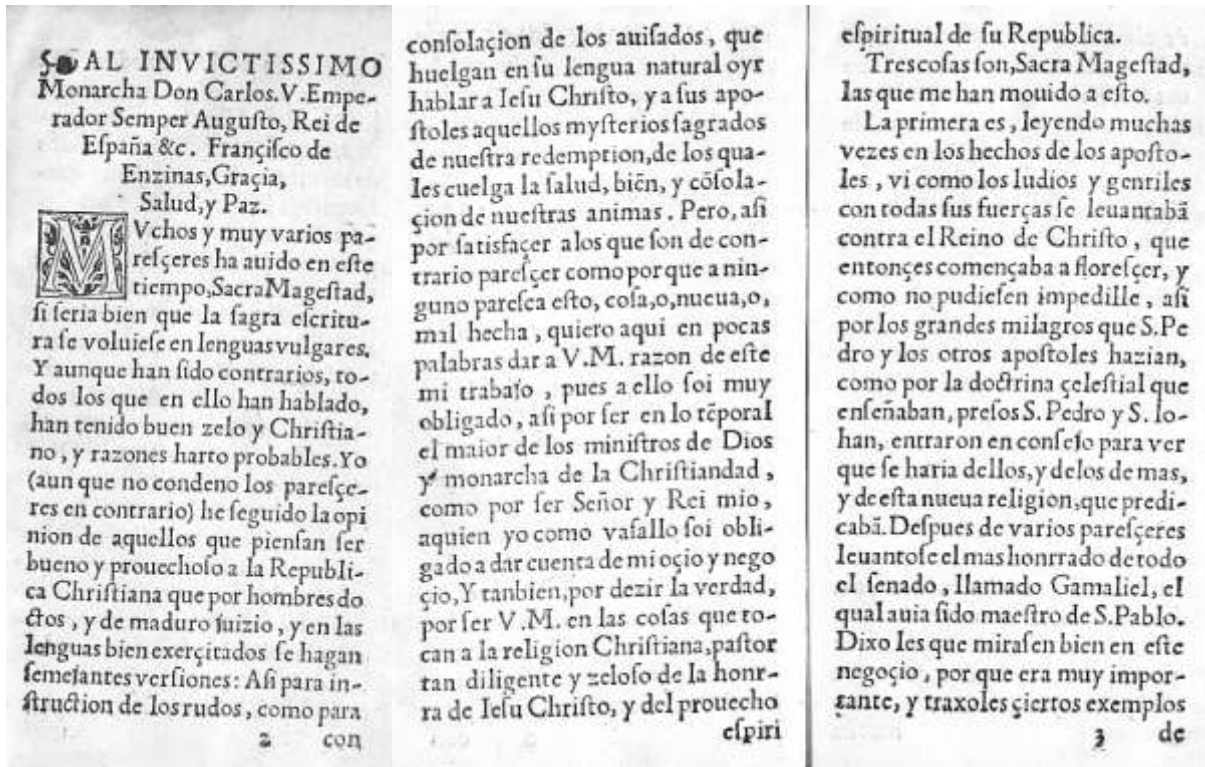 AL INVICTISSIMO
Monarcha Don Carlos.V.Empe-
rador Semper Auguſto, Rei de
Eſpaña &c. Françiſco de
Enzinas,Graçia,
Salud,y Paz.
MVchos y muy varios pa-
reſçeres ha auido en eſte
tiempo,Sacra Mageſtad,
ſi ſeria bien que la ſagra eſcritu-
ra ſe voluieſe en lenguas vulgares.
Y aunque han ſido contrarios, to-
dos los que en ello han hablado,
han tenido buen zelo y Chriſtia-
no, y razones harto probables.Yo
(aun que no condeno los pareſçe-
res en contrario) he ſeguido la opi
nion de aquellos que pienſan ſer
bueno y prouechoſo a la Republi-
ca Chriſtiana que por hombres do
ctos, y de maduro ſuizio, y en las
lenguas bien exerçitados ſe hagan
ſemeſantes verſiones: Aſi para in-
ſtruction de los rudos, como para
2 con
conſolaçion de los auiſados, que
huelgan en ſu lengua natural oyr
hablar a Ieſu Chriſto, y a ſus apo-
ſtoles aquellos myſterios ſagrados
de nueſtra redemption,de los qua-
les cuelga la ſalud, biẽn, y cõſola-
çion de nueſtras animas. Pero, aſi
por ſatisfaçer a los que ſon de con-
trario pareſçer como por que a nin-
guno pareſca eſto, coſa,o,nueua,o,
mal hecha, quiero aqui en pocas
palabras dar a V.M. razon de eſte
mi trabaſo, pues a ello ſoi muy
obligado, aſi por ſer en lo tẽporal
el maior de los miniſtros de Dios
y monarcha de la Chriſtiandad,
como por ſer Señor y Rei mio,
aquien yo como vaſallo ſoi obli-
gado a dar cuenta de mi oçio y nego
çio,Y tanbien,por dezir la verdad,
por ſer V.M. en las coſas que to-
can a la religion Chriſtiana,paſtor
tan diligente y zeloſo de la honr-
ra de Ieſu Chriſto, y del prouecho
eſpiri
eſpiritual de ſu Republica.
Tres coſas ſon,Sacra Mageſtad,
las que me han mouido a eſto.
La primera es, leyendo muchas
vezes en los hechos de los apoſto-
les, vi como los Iudios y gentiles
con todas ſus fuerças ſe leuantabã
contra el Reino de Chriſto, que
entonçes començaba a floreſçer, y
como no pudieſen impedille, aſi
por los grandes milagros que S.Pe
dro y los otros apoſtoles hazian,
como por la doctrina çeleſtial que
enſeñaban, preſos S. Pedro y S. Io-
han, entraron en conſeſo para ver
que ſe haria dellos,y de los de mas,
y de eſta nueua religion,que predi-
cabã.Deſpues de varios pareſçeres
leuantoſe el mas honrrado de todo
el ſenado, llamado Gamaliel, el
qual auia ſido maeſtro de S.Pablo.
Dixo les que miraſen bien en eſte
negoçio, por que era muy impor-
tante, y traxoles çiertos exemplos
3 de